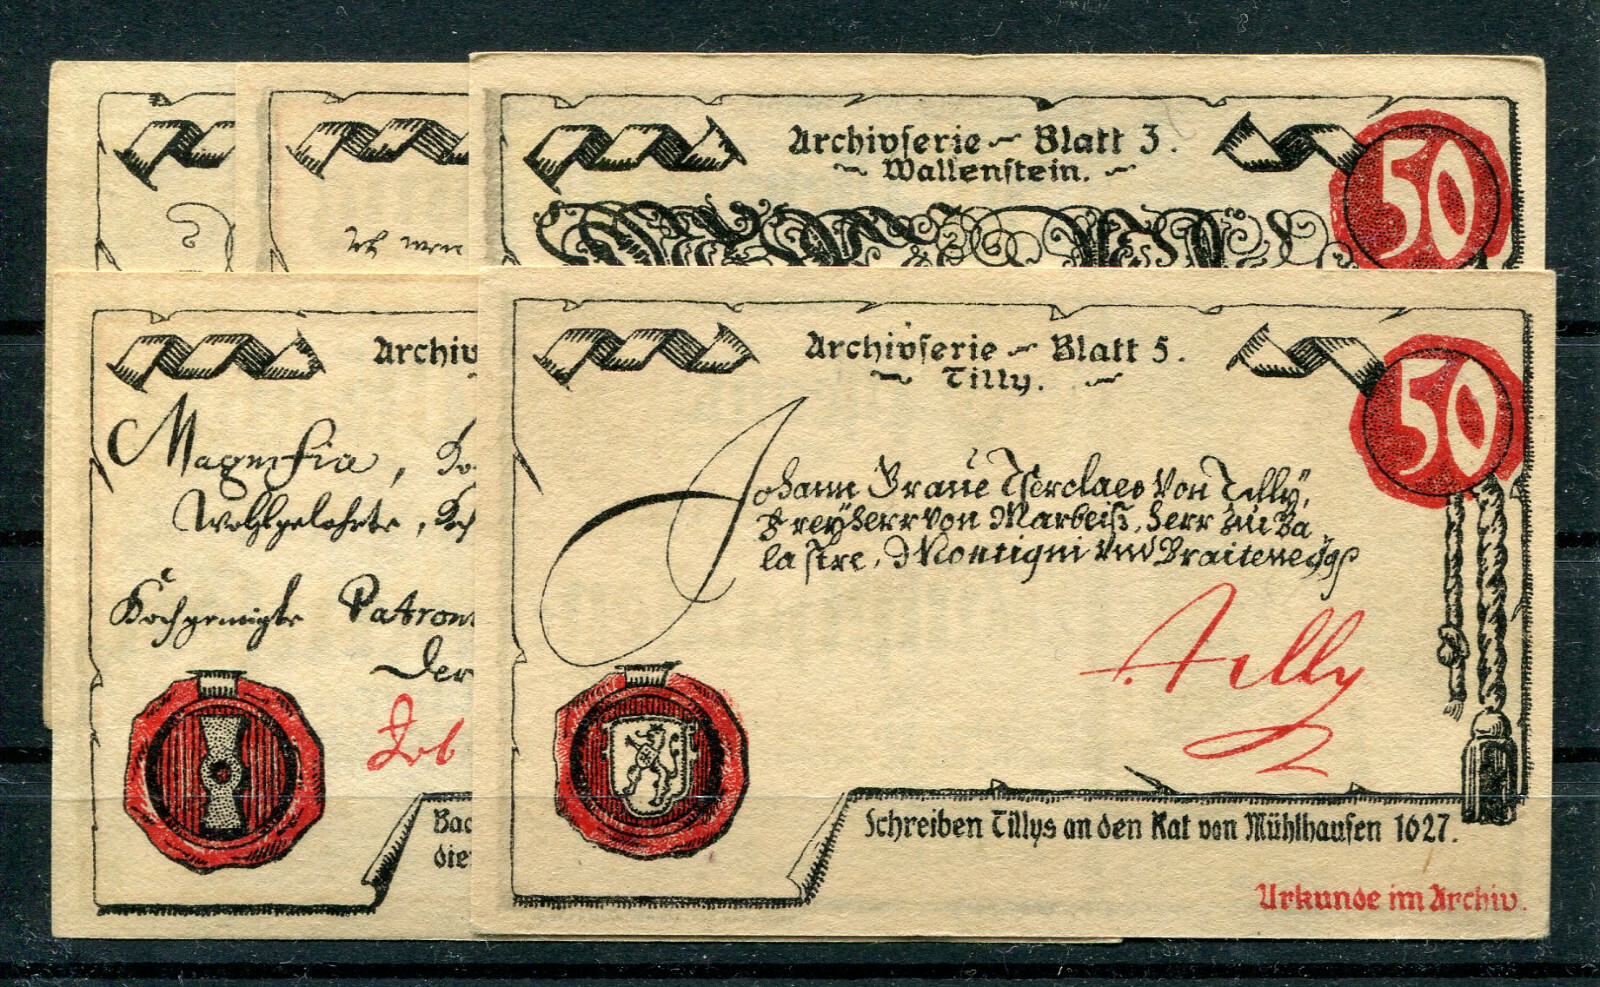 Archivserie - Blatt 3.
Wallenstein.
50
Archiv
Magnifice,
Wohlgelahrte,
Hochgeneigte Patron
Der
Bac
die
Archivserie - Blatt 5.
Tilly.
50
Johann Graue Tserclaes Von Tilly,
Freyherr von Marbeiß, Herr zu Ba
lastre, Montigni Vnd Braiteneggs
Tilly
Schreiben Tillys an den Rat von Mühlhausen 1627.
Urkunde im Archiv.